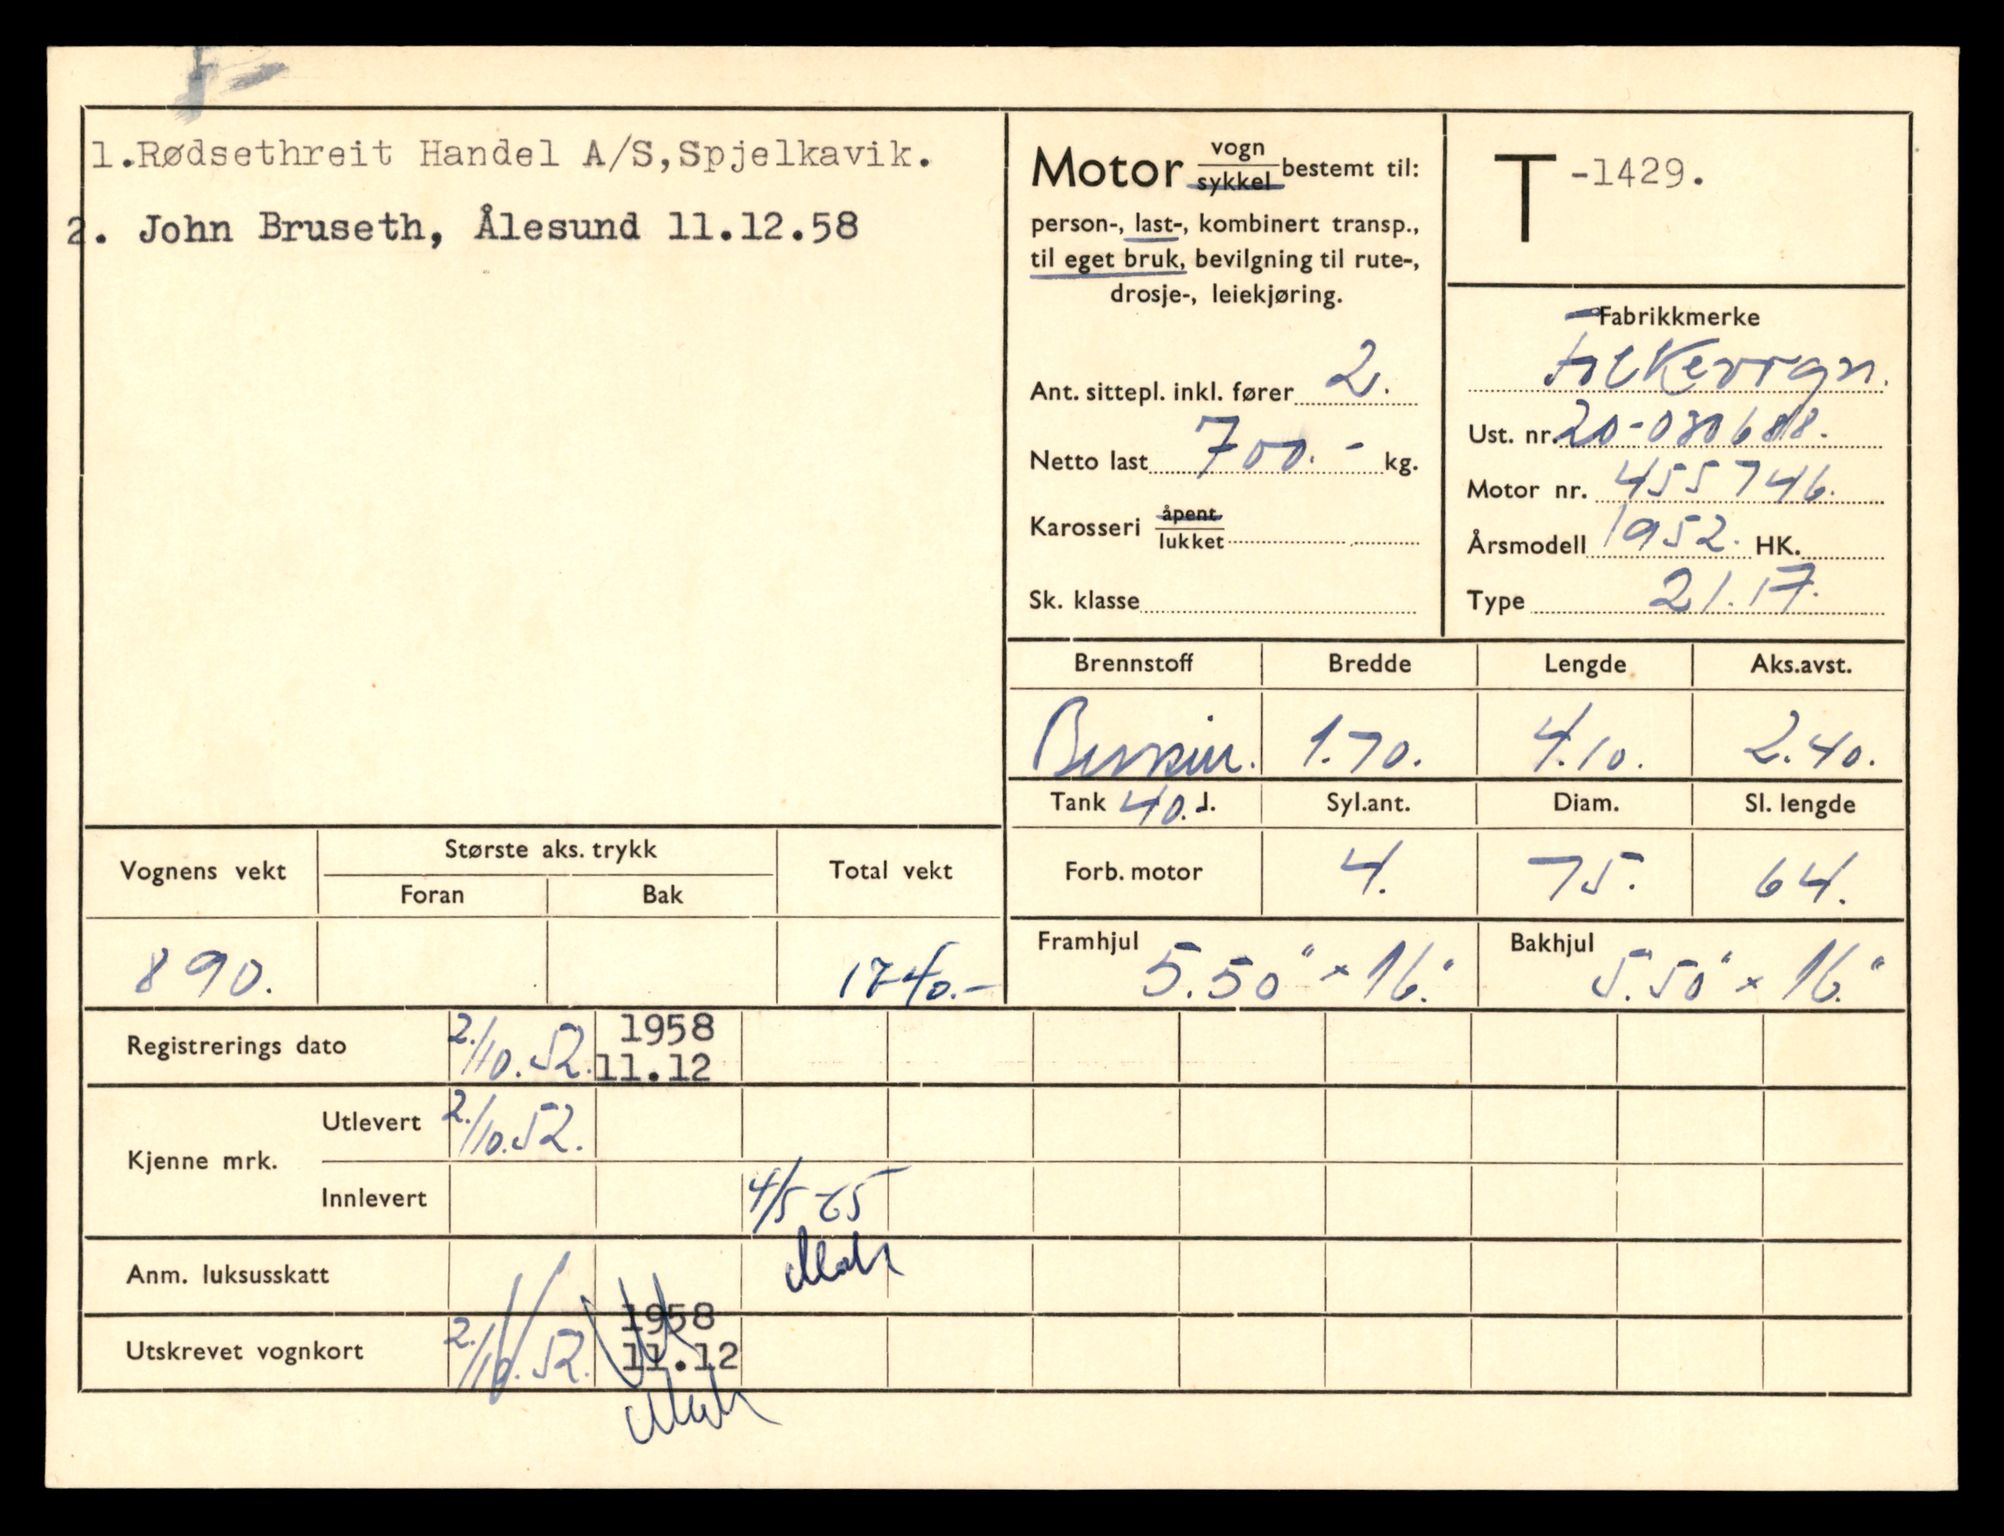 1.Rødsethreit Handel A/S,Spjelkavik.
2. John Bruseth, Ålesund 11.12.58
Motor vogn
sykkel bestemt til:
person-, last-, kombinert transp.,
til eget bruk, bevilgning til rute-,
drosje-, leiekjøring.
Ant. sittepl. inkl. fører 2.
Netto last 700.- kg.
Karosseri åpent
lukket
Sk. klasse
T -1429.
Fabrikkmerke
Folkevogn.
Ust. nr. 20-030688.
Motor nr. 455746.
Årsmodell 1952. HK.
Type 21.17.
Brennstoff Bredde Lengde Aks.avst.
Bensin. 1.70. 4.10. 2.40.
Tank 40. l. Syl.ant. Diam. Sl. lengde
Forb. motor 4. 75. 64.
Framhjul 5.50" x 16." Bakhjul 5.50" x 16."
Vognens vekt Største aks. trykk Total vekt
Foran Bak
890. 1740.-
Registrerings dato 2./10.52. 1958
11.12
Kjenne mrk. Utlevert 2./10.52.
Innlevert 4/5-65
Anm. luksusskatt
Utskrevet vognkort 2./10.52. 1958
11.12